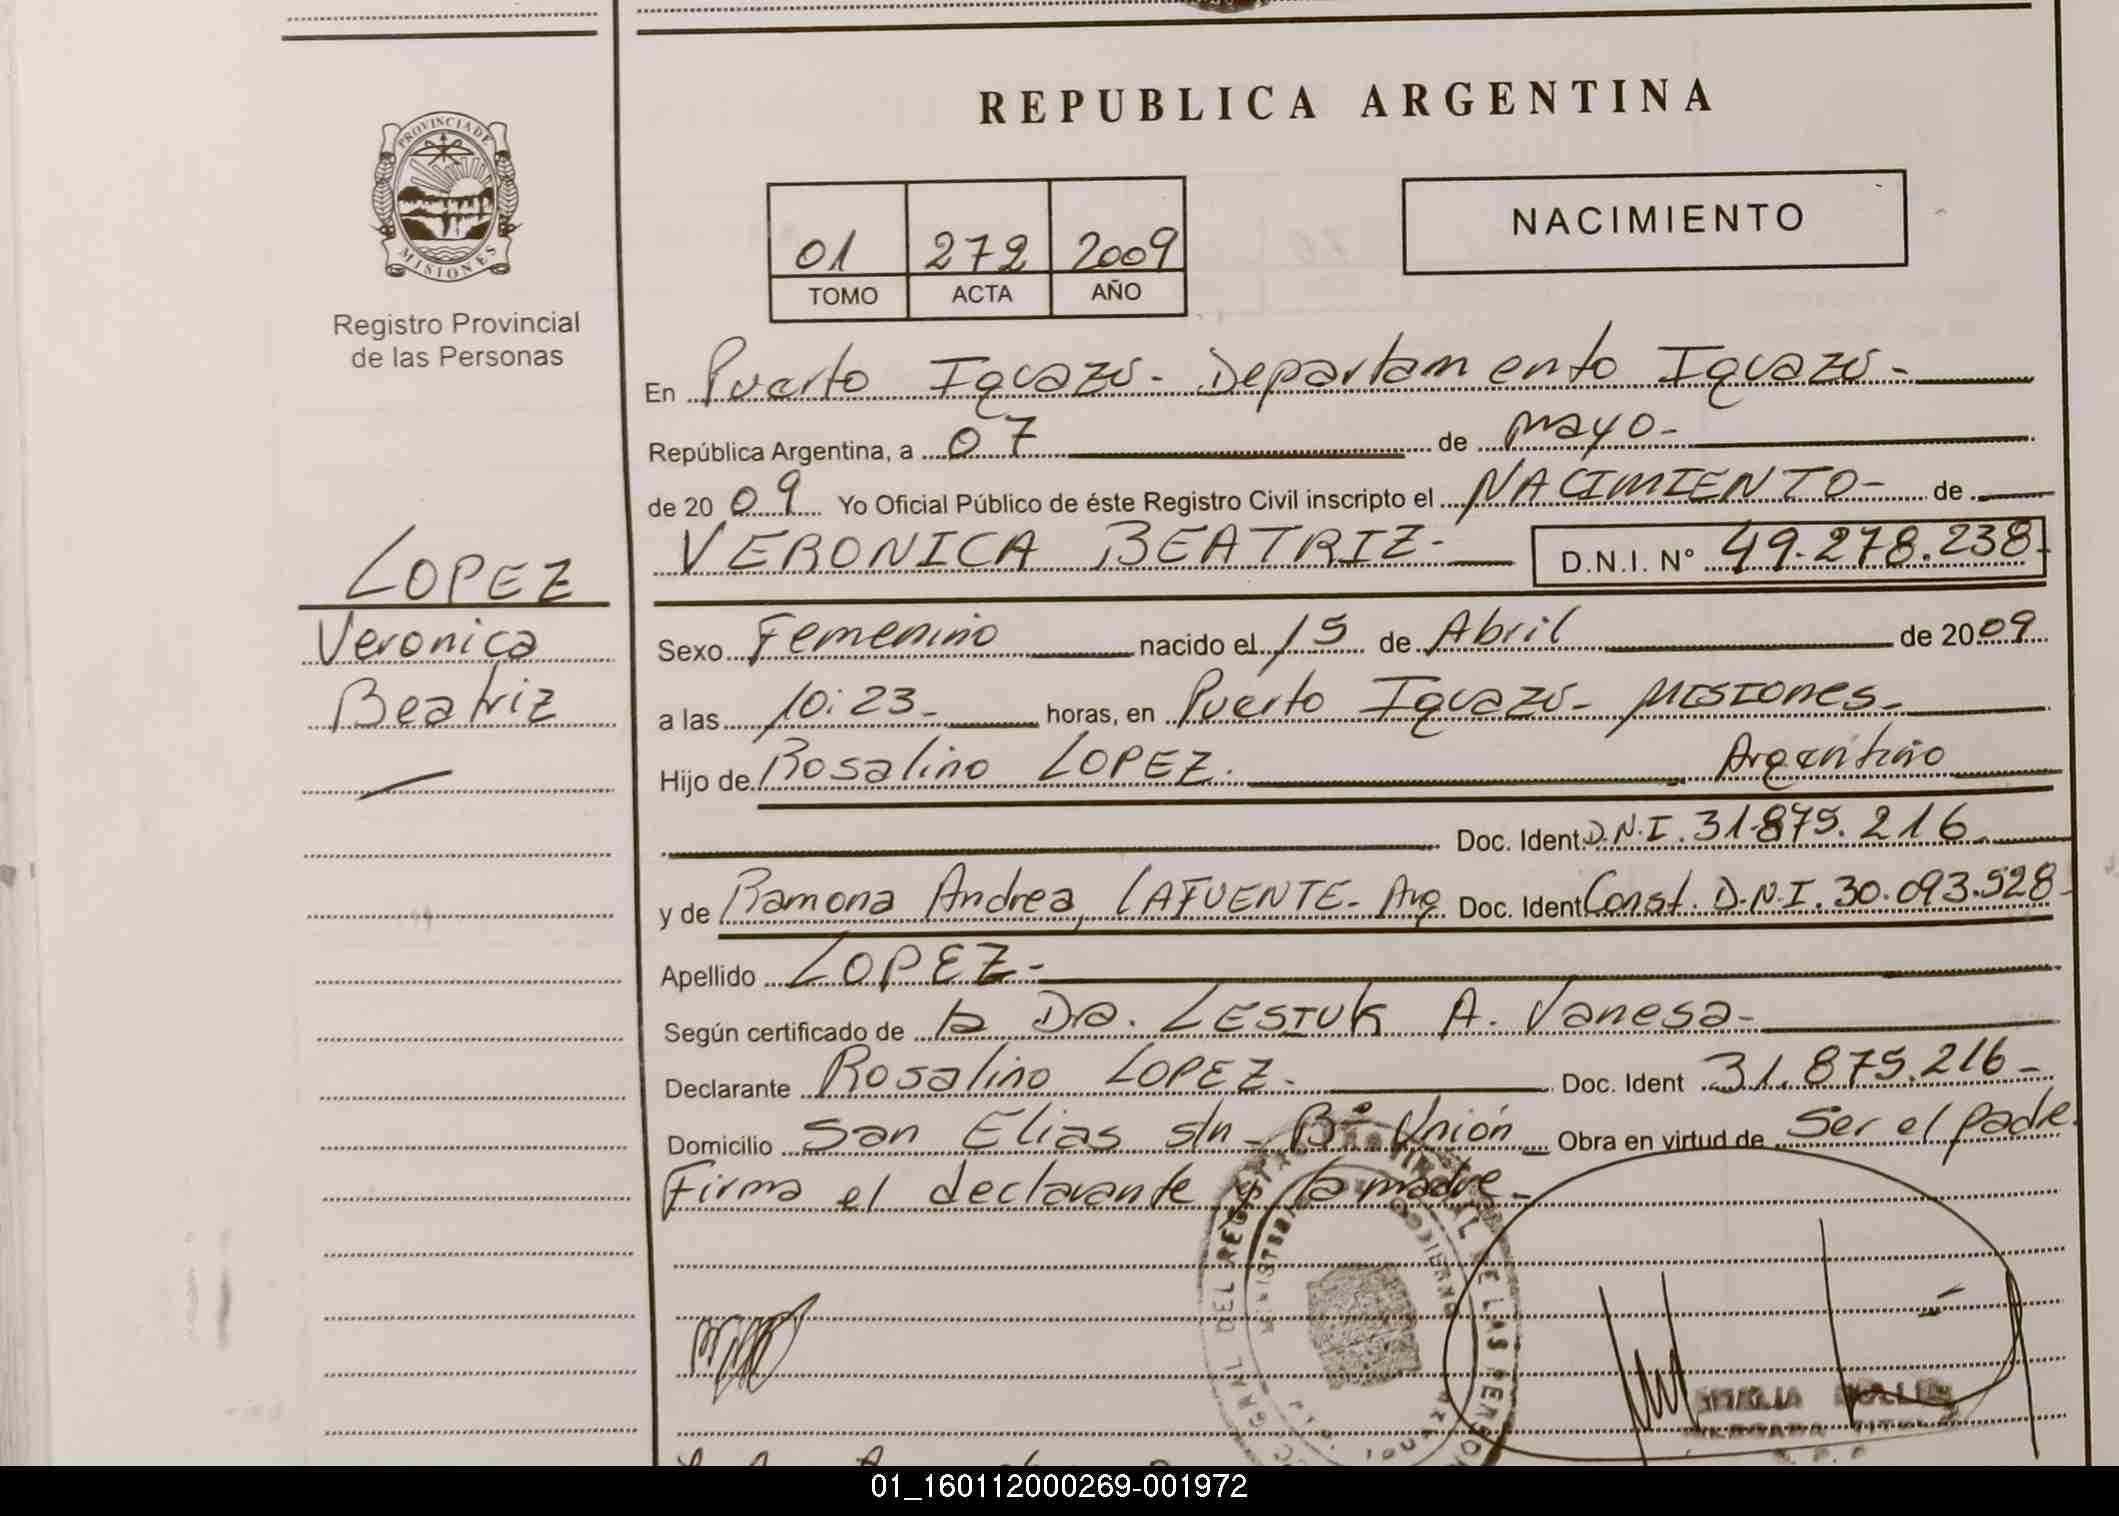 REPUBLICA ARGENTINA
PROVINCIA DE
MISIONES
Registro Provincial
de las Personas
NACIMIENTO
01 272 2009
TOMO ACTA AÑO
En Puerto Iguazú - Departamento Iguazú -
República Argentina, a 07 de mayo -
de 2009 Yo Oficial Público de éste Registro Civil inscripto el NACIMIENTO - de
VERONICA BEATRIZ - D.N.I. N° 49.278.238
LOPEZ
Veronica
Beatriz
Sexo Femenino nacido el 15 de Abril de 2009
a las 10:23 - horas, en Puerto Iguazú - MISIONES -
Hijo de Rosalino LOPEZ. Argentino
Doc. Ident D.N.I. 31.875.216
y de Ramona Andrea, LAFUENTE - Arg Doc. Ident Const. D.N.I. 30.093.528
Apellido LOPEZ -
Según certificado de la Dra. LESIUK A. Vanesa -
Declarante Rosalino LOPEZ - Doc. Ident 31.875.216 -
Domicilio San Elias s/n - B° Unión Obra en virtud de Ser el padre.
Firma el declarante y la madre -
01_160112000269-001972